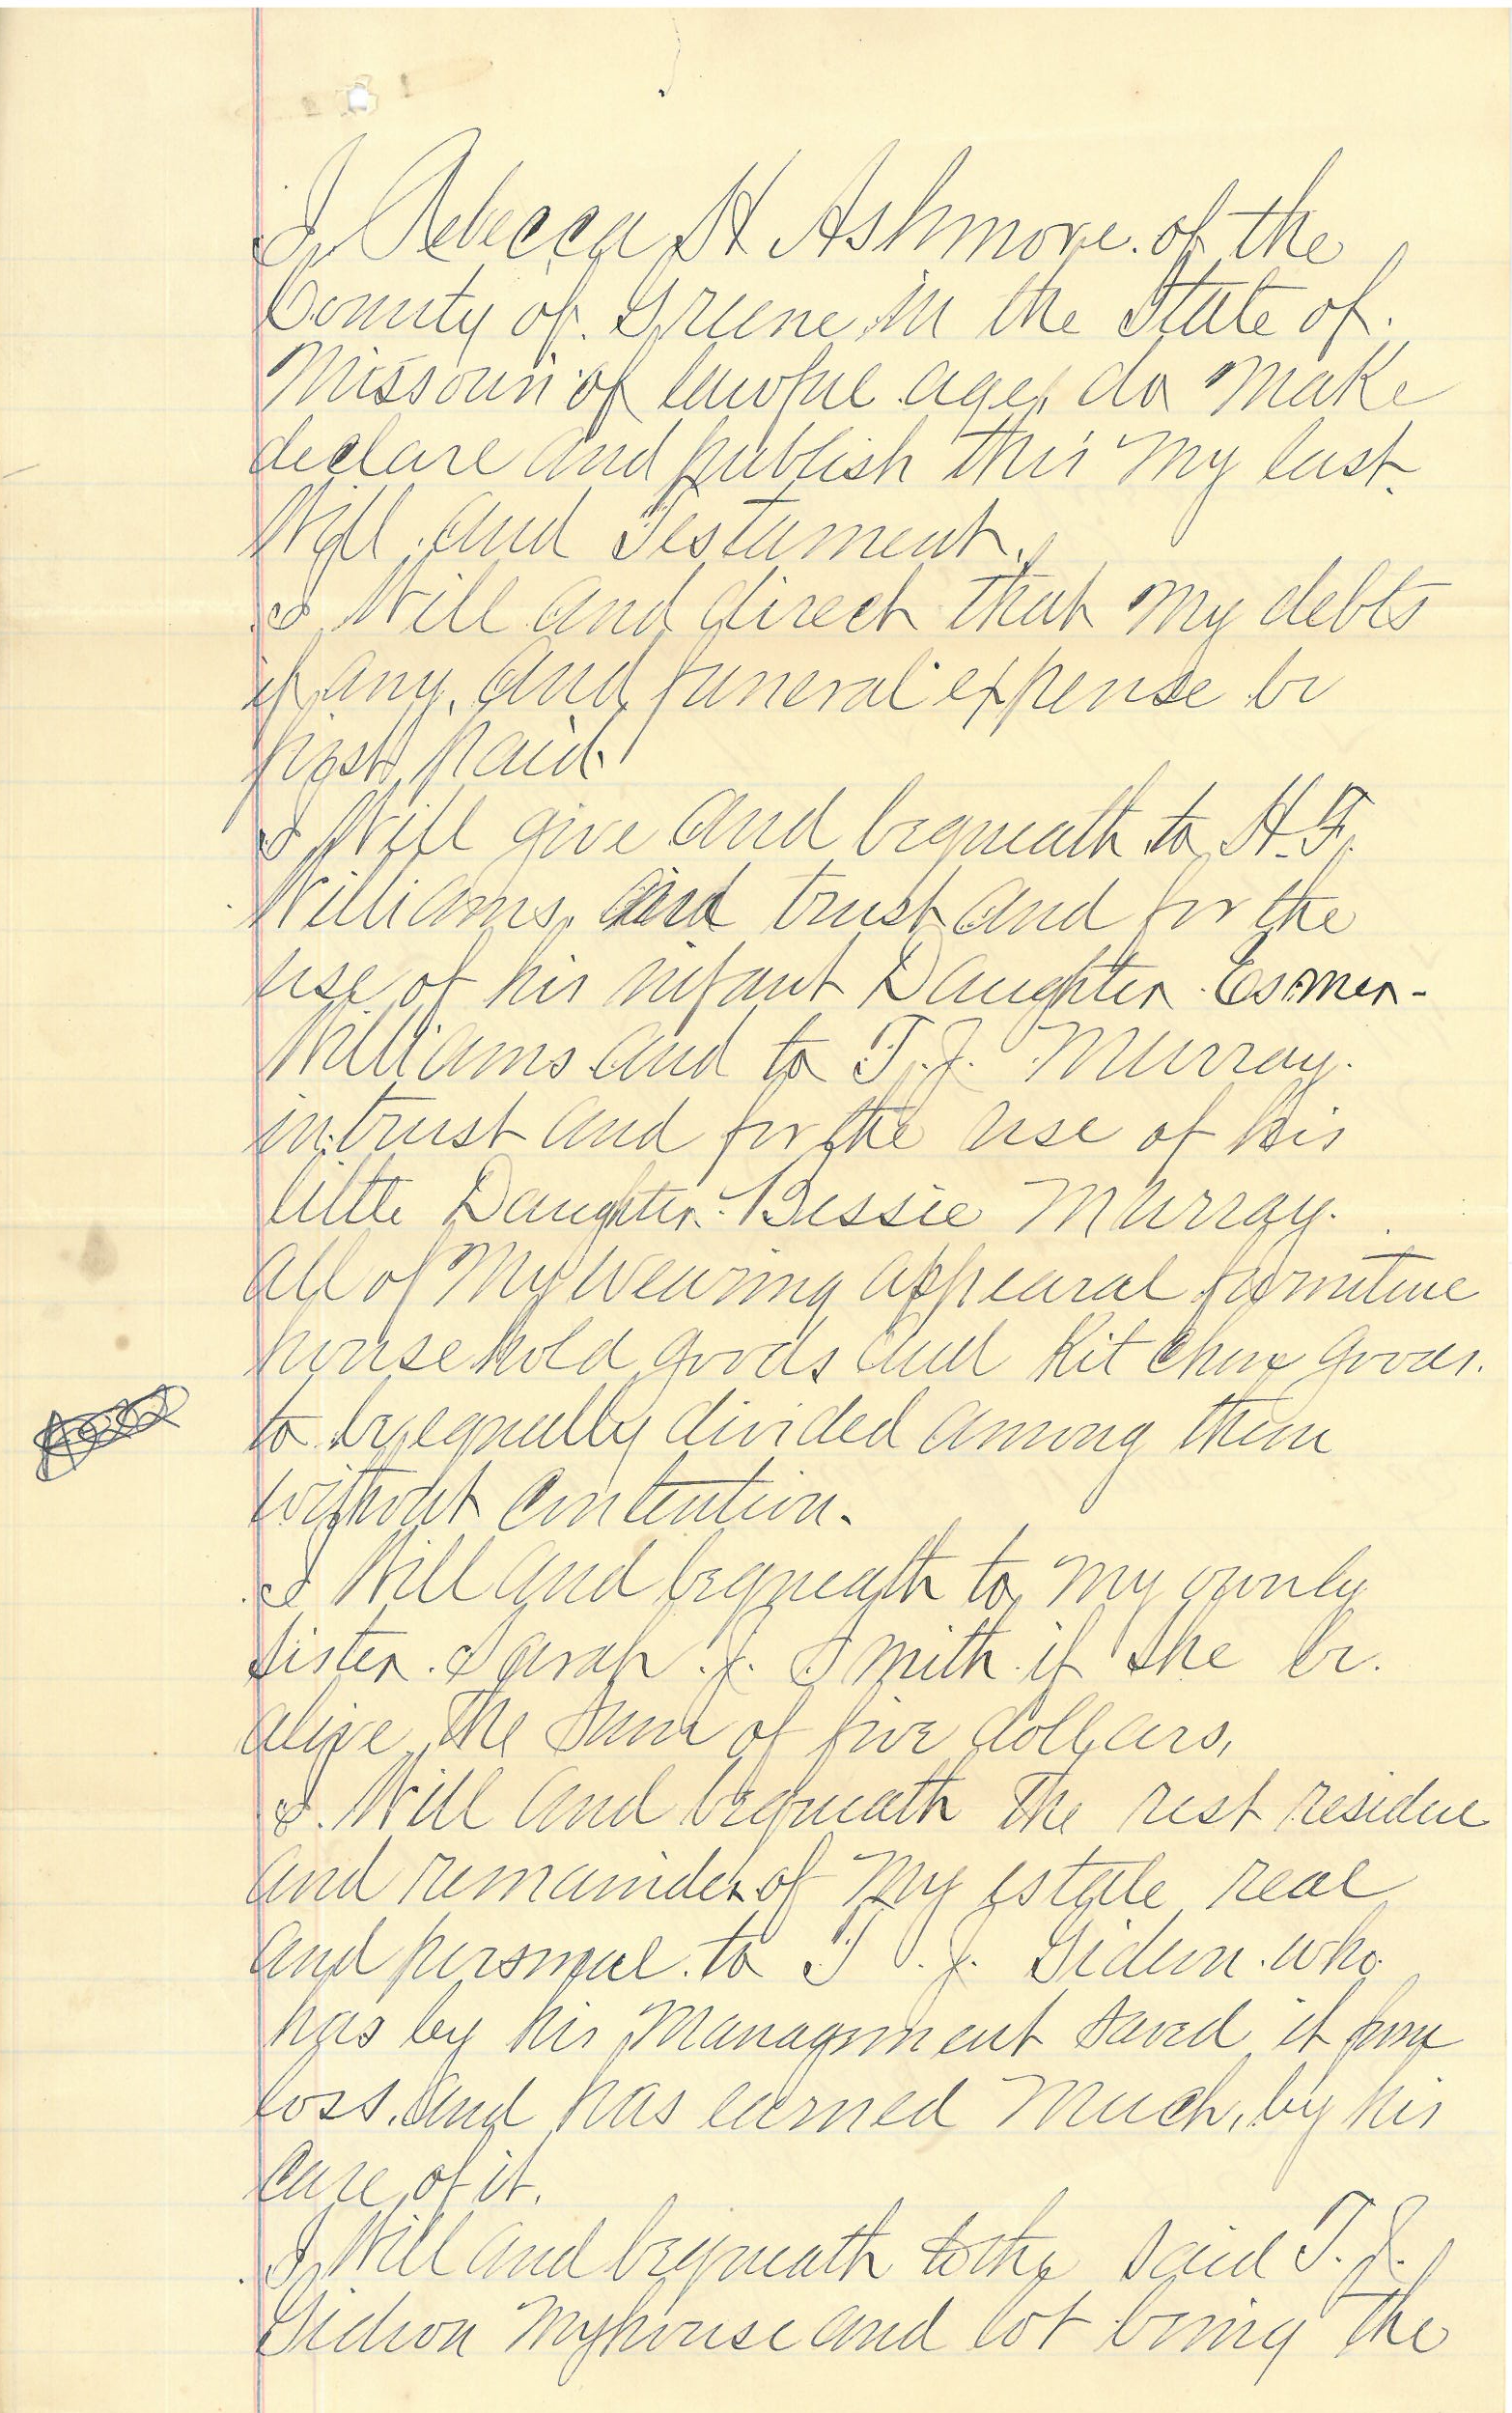 I, Rebecca H Ashmore. of the
County of. Greene in the State of.
Missouri of lawful age, do make
declare and publish this my last
Will and Testament.
I Will and direct that my debts
if any, and funeral expense be
first paid.
I Will give and bequeath to H.F.
Williams, and trust and for the
use of his infant Daughter
Williams and to T.J. Murray.
in trust and for the use of his
little Daughter. Bessie Murray.
all of my wearing appearal furniture
household goods and Kitchen goods.
to be equally divided among them
without contention.
I Will and bequeath to my ownly
sister. Sarah. J. Smith if she be.
alive the sum of five dollars,
I. Will and bequeath the rest residue
and remainder of my estate real
and personal. to T. J. Gideon. who
has by his managment saved it from
loss. and has earned much, by his
care of it.
I, Will and bequeath to the said T. J.
Gideon my house and lot being the